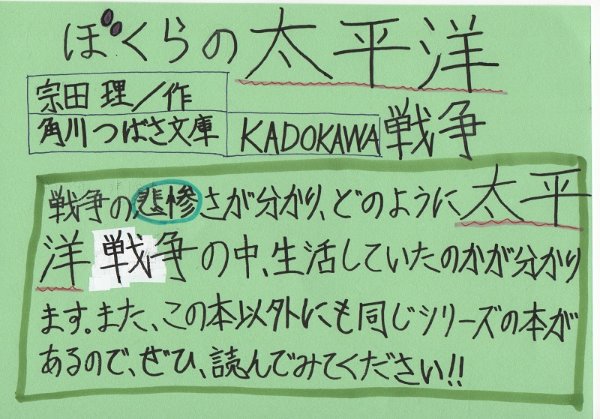 ぼくらの太平洋
戦争
宗田 理／作
角川つばさ文庫
KADOKAWA
戦争の悲惨さが分かり、どのように太平
洋戦争の中、生活していたのかが分かり
ます。また、この本以外にも同じシリーズの本が
あるので、ぜひ、読んでみてください!!